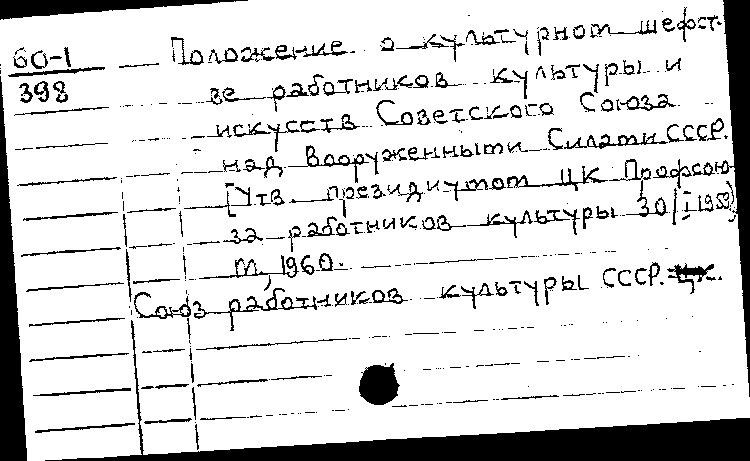 60-1
398
Положение о культурном шефст-
ве работников культуры и
искусств Советского Союза
над Вооруженными Силами СССР.
[Утв. президиумом ЦК Профсою-
за работников культуры 30/I 1959]
М., 1960.
Союз работников культуры СССР.